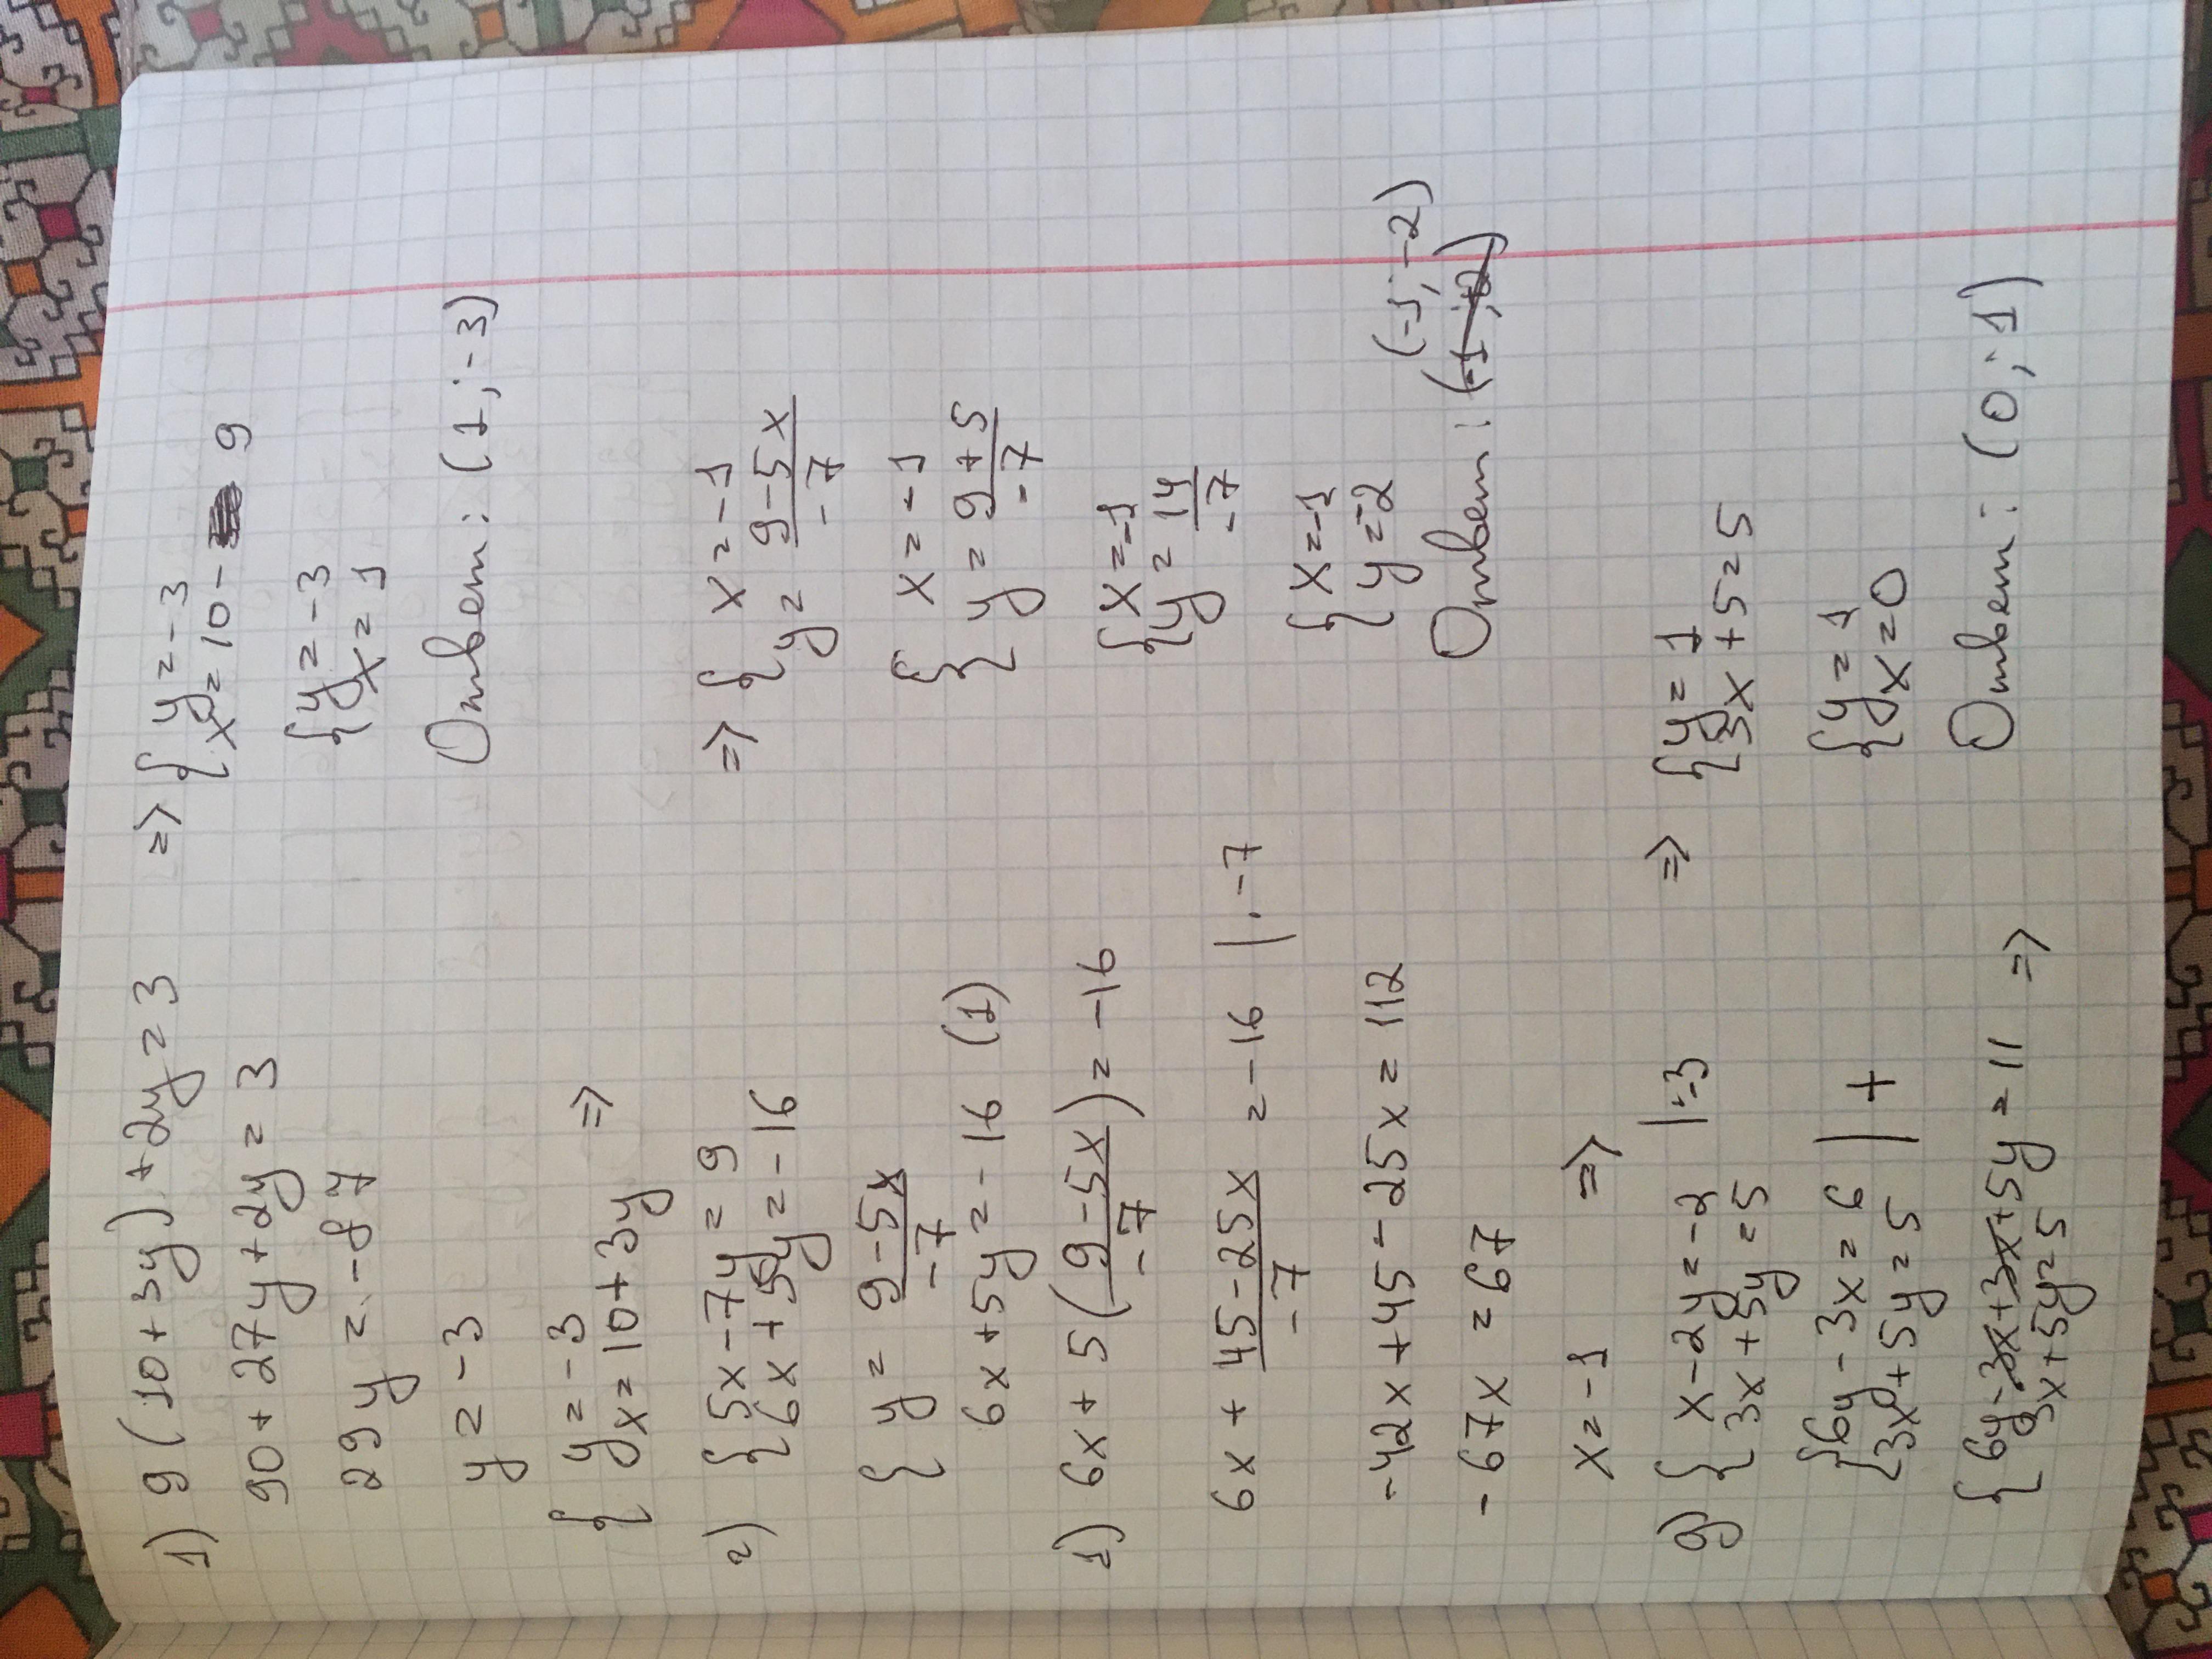 1) 9(10+3y)+2y=3 => { y=-3
x=10- 9
90+27y+2y=3
{ y=-3
x=1
29y=-87
y=-3
Ответ: (1;-3)
{ y=-3
x=10+3y =>
г) { 5x-7y=9
6x+5y=-16
=> { x=-1
y= 9-5x/-7
{ y= 9-5x/-7
6x+5y=-16 (1)
{ x=-1
y= 9+5/-7
1) 6x+5(9-5x/-7)=-16
{ x=-1
y= 14/-7
6x+ 45-25x/-7 =-16 |·-7
{ x=-1
y=-2
-42x+45-25x=112
(-1;-2)
Ответ: (-1;+2)
-67x=67
x=-1 =>
д) { x-2y=-2 |·-3
3x+5y=5
=> { y=1
3x+5=5
{ 6y-3x=6
3x+5y=5 | +
{ y=1
x=0
{ 6y-3x+3x+5y=11
3x+5y=5 =>
Ответ: (0;1)